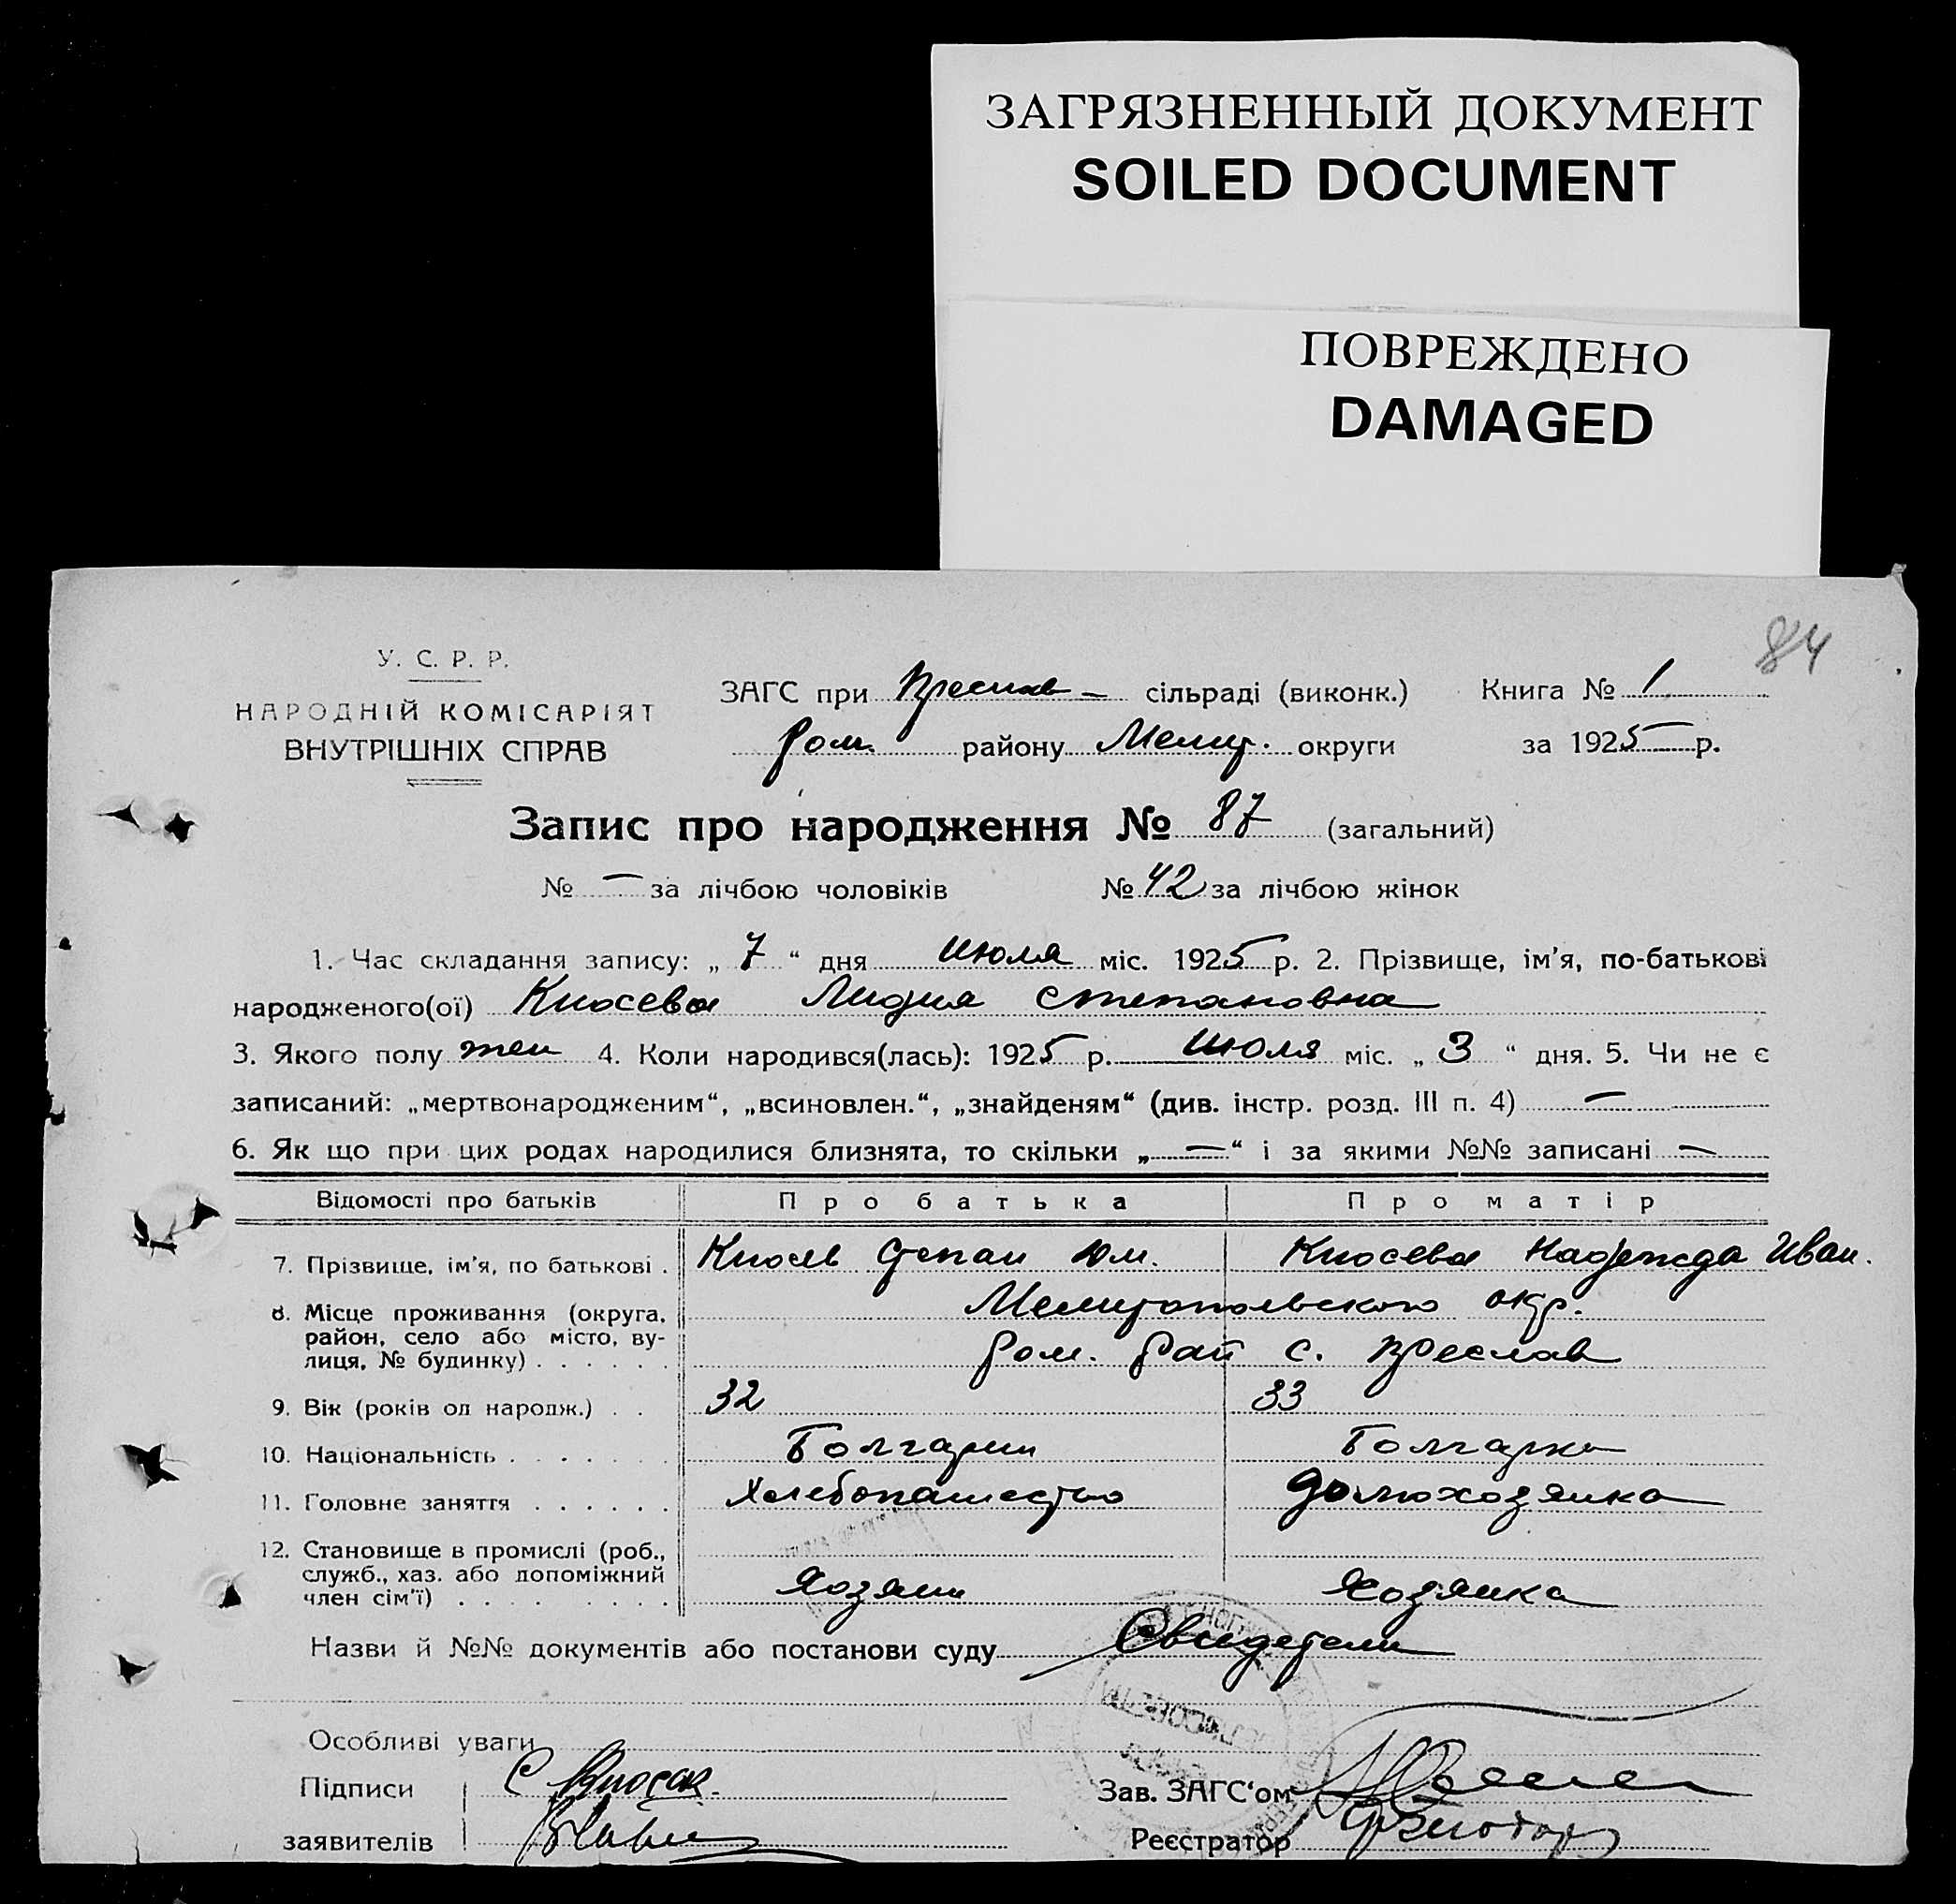 ЗАГРЯЗНЕННЫЙ ДОКУМЕНТ
SOILED DOCUMENT
ПОВРЕЖДЕНО
DAMAGED
84
У. С. Р. Р.
НАРОДНІЙ КОМІСАРІЯТ
ВНУТРІШНІХ СПРАВ
ЗАГС при Преслав – сільраді (виконк.) Книга № 1
Ром. району Мелит. округи за 1925 р.
Запис про народження № 87 (загальний)
№ — за лічбою чоловіків № 42 за лічбою жінок
1. Час складання запису: „ 7 “ дня Июля міс. 1925 р. 2. Прізвище, ім’я, по-батькові
народженого(ої) Киосева Лидия Степановна
3. Якого полу жен 4. Коли народився(лась): 1925 р. Июля міс. „ 3 “ дня. 5. Чи не є
записаний: „мертвонародженим“, „всиновлен.“, „знайденям“ (див. інстр. розд. III п. 4) —
6. Як що при цих родах народилися близнята, то скільки „ — “ і за якими №№ записані —
Відомості про батьків Про батька Про матір
7. Прізвище, ім’я, по батькові . Киосев Степан Юм. Киосева Надежда Иван.
8. Місце проживання (округа, Мелитопольского окр.
район, село або місто, ву- Ром. рай с. Преслав
лиця, № будинку) . . . . . .
9. Вік (років од народж.) . . 32 33
10. Національність . . . . . . . Болгарин Болгарка
11. Головне заняття . . . . . . Хлебопашество Домохозяйка
12. Становище в промислі (роб.,
служб., хаз. або допоміжний
член сім’ї) . . . . . . . . Хозяин Хозяйка
Назви й №№ документів або постанови суду Свидетели
Особливі уваги
Підписи С Киосев Зав. ЗАГС‘ом
заявителів Реєстратор